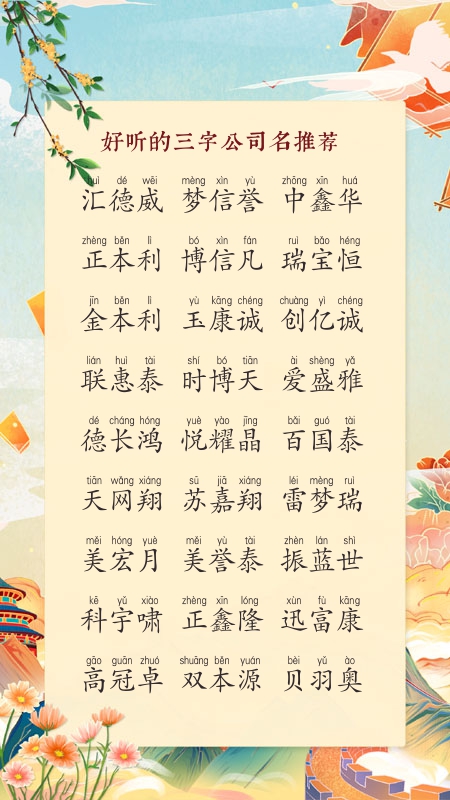 好听的三字公司名推荐
huì dé wēi mèng xìn yù zhōng xīn huá
汇德威 梦信誉 中鑫华
zhèng běn lì bó xìn fán ruì bǎo héng
正本利 博信凡 瑞宝恒
jīn běn lì yù kāng chéng chuàng yì chéng
金本利 玉康诚 创亿诚
lián huì tài shí bó tiān ài shèng yǎ
联惠泰 时博天 爱盛雅
dé cháng hóng yuè yào jīng bǎi guó tài
德长鸿 悦耀晶 百国泰
tiān wǎng xiáng sū jiā xiáng léi mèng ruì
天网翔 苏嘉翔 雷梦瑞
měi hóng yuè měi yù tài zhèn lán shì
美宏月 美誉泰 振蓝世
kē yǔ xiào zhèng xīn lóng xùn fù kāng
科宇啸 正鑫隆 迅富康
gāo guān zhuó shuāng běn yuán bèi yǔ ào
高冠卓 双本源 贝羽奥